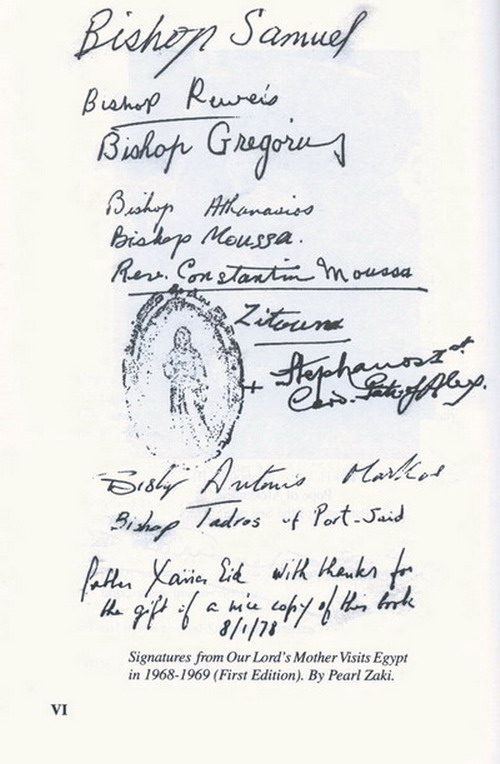 Bishop Samuel
Bishop Ruweis
Bishop Gregorius
Bishop Athanasios
Bishop Moussa.
Rev. Constantin Moussa
Zitoun
+ Stephanos I
Card. Patr of Alex.
Bishop Antonis Markos
Bishop Tadros of Port-Said
father Xavier Eid with thanks for
the gift of a nice copy of this book
8/1/78
Signatures from Our Lord's Mother Visits Egypt
in 1968-1969 (First Edition). By Pearl Zaki.
VI